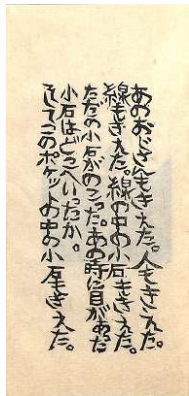 あのおじさんもきえた。人もきえた。
線もきえた。線の中の小石もきえた。
ただの小石がのこった。あの時に目があった
小石はどこへいったか。
そしてこのポケットの中の小石もきえた。